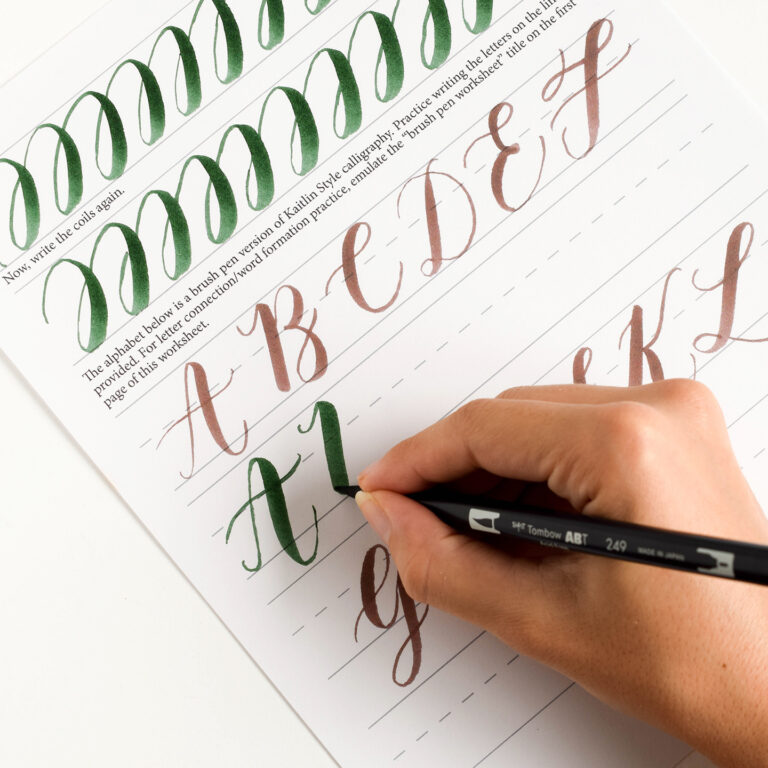 Now, write the coils again.
The alphabet below is a brush pen version of Kaitlin Style calligraphy. Practice writing the letters on the
provided. For letter connection/word formation practice, emulate the "brush pen worksheet" title on the first
page of this worksheet.
A B C D E F
A
G K L
Tombow ABT 249 MADE IN JAPAN